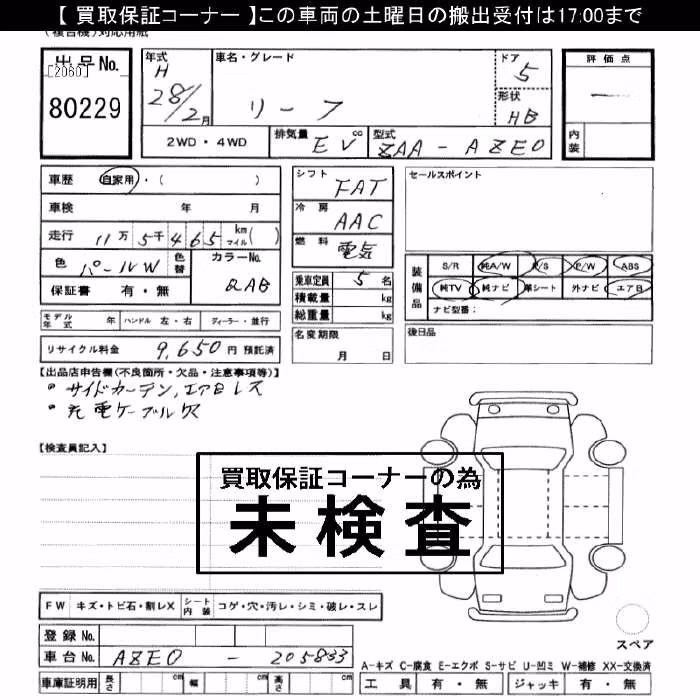 【 買取保証コーナー 】この車両の土曜日の搬出受付は17:00まで
(複合機)対応用紙
出品No.
[2060]
80229
年式
H
28/2月
車名・グレード
リーフ
ドア
5
形状
HB
評価点
内装
2WD・4WD
排気量 EV cc
型式 ZAA-AZE0
車歴 自家用・( )
車検 年 月
走行 11万5千465 km マイル( )
色 パールW 色替
カラーNo.
QAB
保証書 有・無
シフト FAT
冷房 AAC
燃料 電気
乗車定員 5名
積載量 kg
総重量 kg
セールスポイント
装備品
S/R 純A/W P/S P/W ABS
純TV 純ナビ 革シート 外ナビ エアB
ナビ型番:
モデル年式 年 ハンドル 左・右 ディーラー・並行
名変期限
月 日
後日品
リサイクル料金 9,650円 預託済
【出品店申告欄(不良箇所・欠品・注意事項等)】
• サイドカーテン,エアBレス
• 充電ケーブル欠
【検査員記入】
買取保証コーナーの為
未検査
FW キズ・トビ石・割レX シート内装 コゲ・穴・汚レ・シミ・破レ・スレ
登録No.
車台No. AZE0 - 205833
車庫証明用 長さ cm 幅 cm 高さ cm
スペア
A-キズ C-腐食 E-エクボ S-サビ U-凹ミ W-補修 XX-交換済
工具 有・無 ジャッキ 有・無